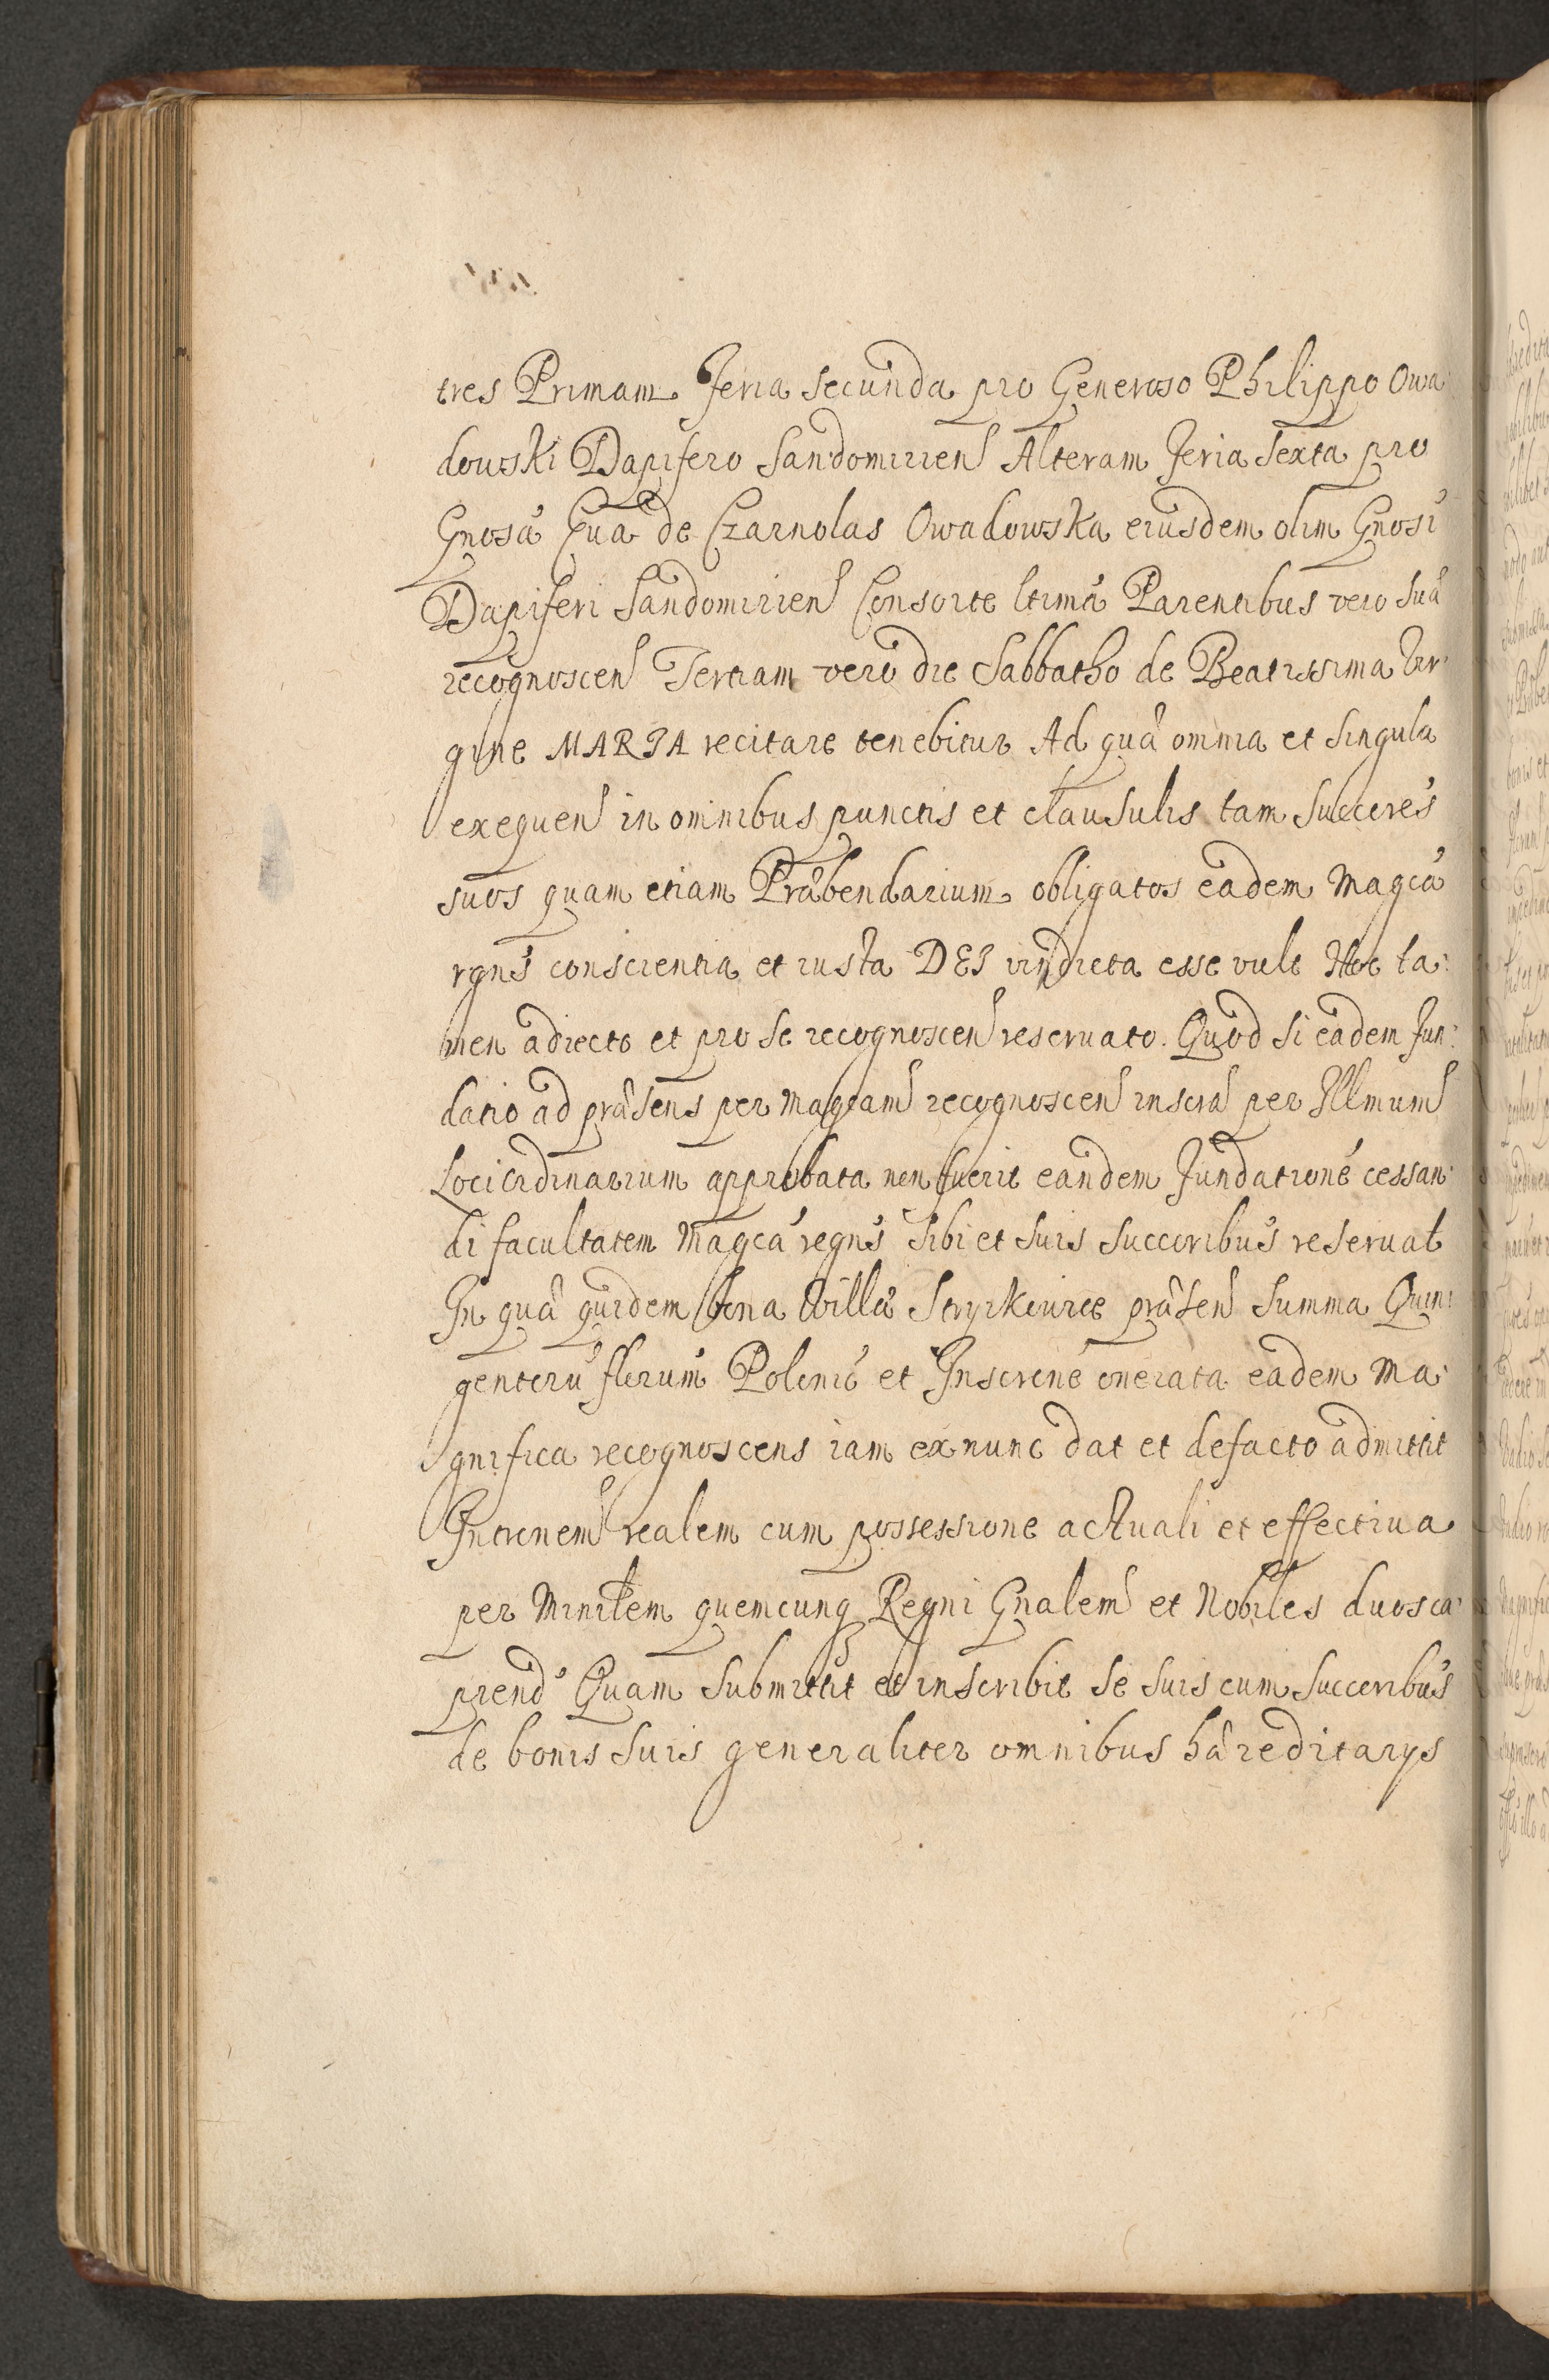 tres Primam Feria secunda pro Generoso Philippo Owa
dowski Dapifero Sandomirien Alteram Feria Sexta pro
Gnosa Eua de Czarnolas Owadowska eiusdem olim Gnosi
Dapiferi Sandomirien Consorte ltima Parentibus vero sua
recognoscen Tertiam vero die Sabbatho de Beatissima Vir
gine MARIA recitare tenebitur Ad quâ omnia et singula
exequen in omnibus punctis et clausulis tam Succeres
suos quam etiam Præbendarium obligatos eadem Magca
rgns conscientia et iusta DEI vindicta esse vult Hoc ta:
men adiecto et pro se recognoscen reservato. Quod si eadem Fun:
datio ad præsens per Magcam recognoscen inscra per Illmum
Loci Ordinarium approbata non fuerit eandem Fundatione cessan
di facultatem Magca regns sibi et suis succoribus reservat
In quâ quidem bona Villa Stryikowice præsen summa Quin:
gentoru flrum Polonic et Inscrone onerata eadem Ma:
gnifica recognoscens iam ex nunc dat et defacto admittit
Intronem realem cum possessione actuali et effectiva
per Minilem quemcunq Regni Gnalem et Nobiles duos ca:
piend Quam submittit et inscribit se suis cum Succoribus
de bonis suis generaliter omnibus hæreditarys